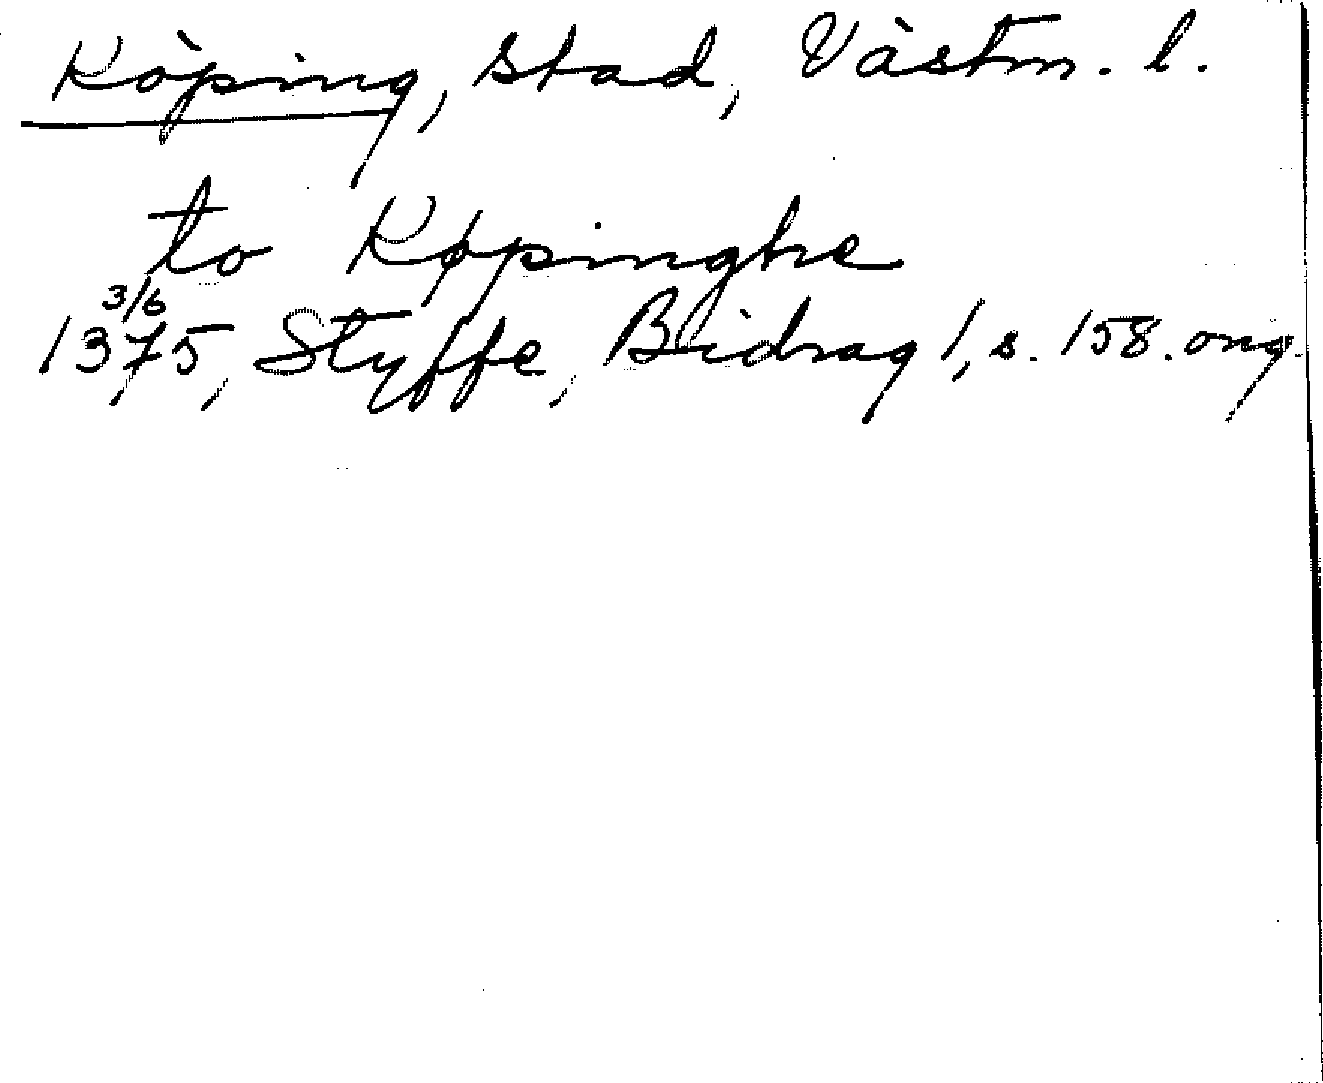 Köping, stad, Västm. l.
to Køpinghe
3/6
1375, Styffe, Bidrag 1, s. 158. orig.